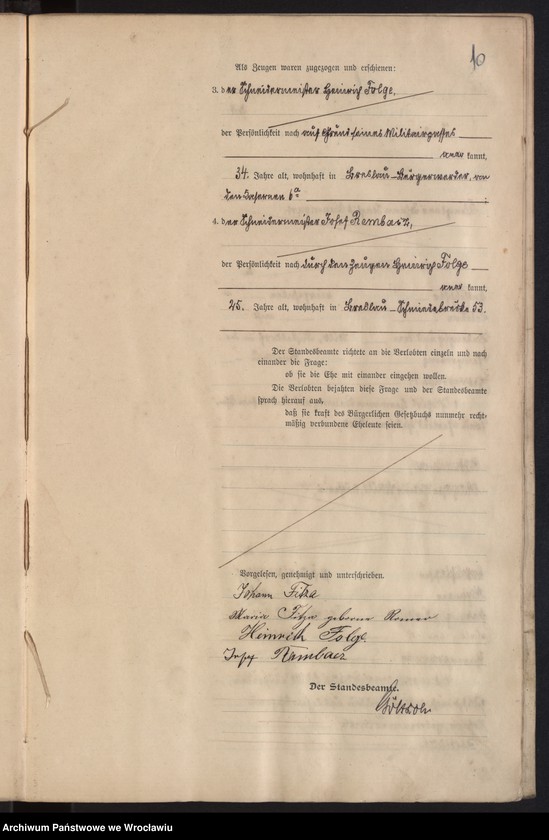 10
Als Zeugen waren zugezogen und erschienen:
3. der Schneidermeister Heinrich Folge,
der Persönlichkeit nach auf Grund seines Militairpasses
kannt,
34. Jahre alt, wohnhaft in Breslau - Bürgerwerder, an
den Kasernen 6a
;
4. der Schneidermeister Josef Rembacz,
der Persönlichkeit nach durch den Zeugen Heinrich Folge
kannt,
25. Jahre alt, wohnhaft in Breslau - Schmiedebrücke 53.
Der Standesbeamte richtete an die Verlobten einzeln und nach
einander die Frage:
ob sie die Ehe mit einander eingehen wollen.
Die Verlobten bejahten diese Frage und der Standesbeamte
sprach hierauf aus,
daß sie kraft des Bürgerlichen Gesetzbuchs nunmehr recht-
mäßig verbundene Eheleute seien.
Vorgelesen, genehmigt und unterschrieben.
Johann Fitza
Maria Fitza geborne Romer
Heinrich Folge.
Josef Rembacz
Der Standesbeamte.
Archiwum Państwowe we Wrocławiu